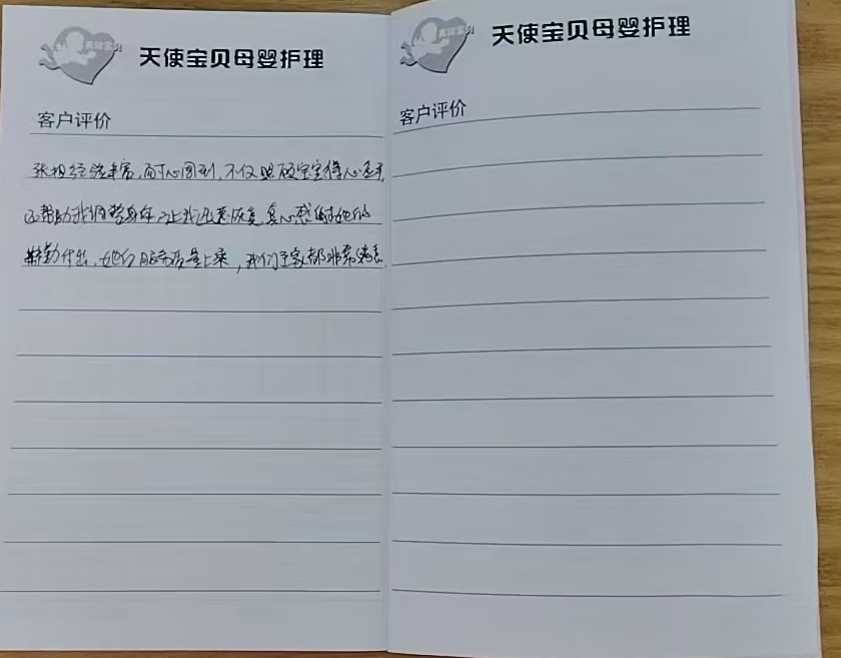 天使宝贝母婴护理
客户评价
张姐经验丰富,耐心周到,不仅照顾宝宝得心应手
还帮助我调整身体,让我迅速恢复,真心感谢她的
辛勤付出,她的服务质量上乘,我们全家都非常满意
天使宝贝母婴护理
客户评价